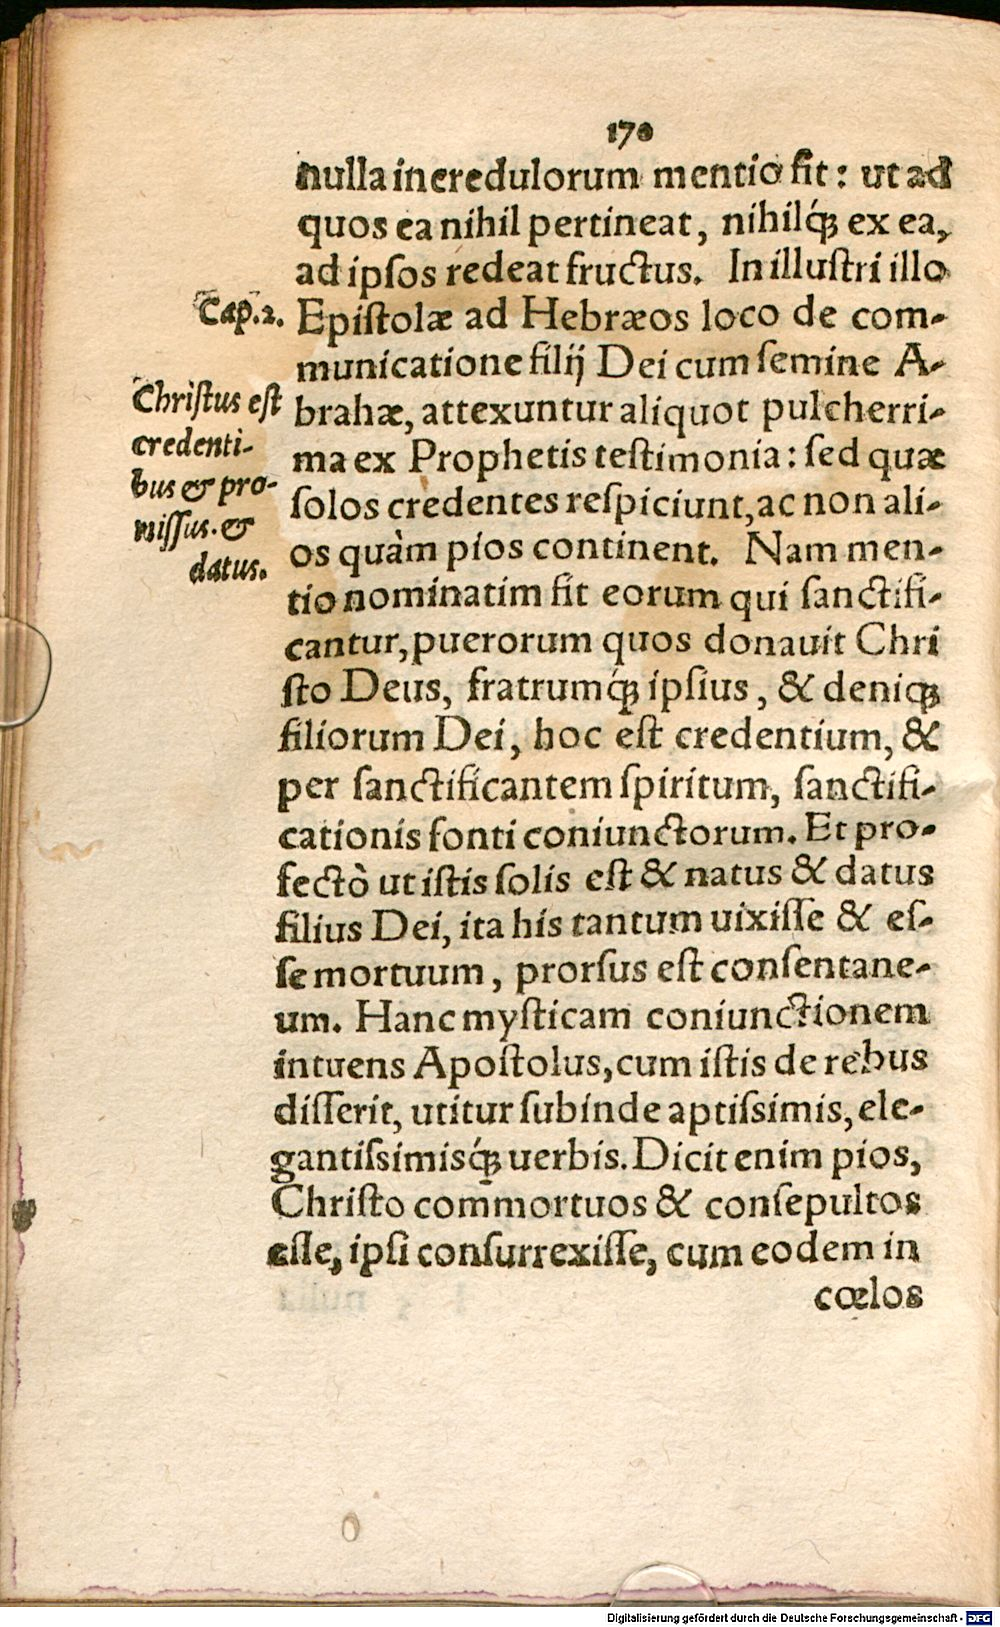 170
nulla incredulorum mentio fit: ut ad
quos ea nihil pertineat, nihilq́ꝫ ex ea,
ad ipſos redeat fructus. In illuſtri illo
Cap.2.
Epiſtolæ ad Hebræos loco de com-
municatione filij Dei cum ſemine A-
Chriſtus eſt
credenti-
bus & pro-
miſſus. &
datus.
brahæ, attexuntur aliquot pulcherri-
ma ex Prophetis teſtimonia: ſed quæ
ſolos credentes reſpiciunt, ac non ali-
os quàm pios continent. Nam men-
tio nominatim fit eorum qui ſanctifi-
cantur, puerorum quos donauit Chri
ſto Deus, fratrumq́ꝫ ipſius, & deniqꝫ
filiorum Dei, hoc eſt credentium, &
per ſanctificantem ſpiritum, ſanctifi-
cationis fonti coniunctorum. Et pro-
fectò ut iſtis ſolis eſt & natus & datus
filius Dei, ita his tantum uixiſſe & eſ-
ſe mortuum, prorſus eſt conſentane-
um. Hanc myſticam coniunctionem
intuens Apoſtolus, cum iſtis de rebus
diſſerit, utitur ſubinde aptiſsimis, ele-
gantiſsimisq́ꝫ uerbis. Dicit enim pios,
Chriſto commortuos & conſepultos
eſſe, ipſi conſurrexiſſe, cum eodem in
cœlos
Digitalisierung gefördert durch die Deutsche Forschungsgemeinschaft - DFG